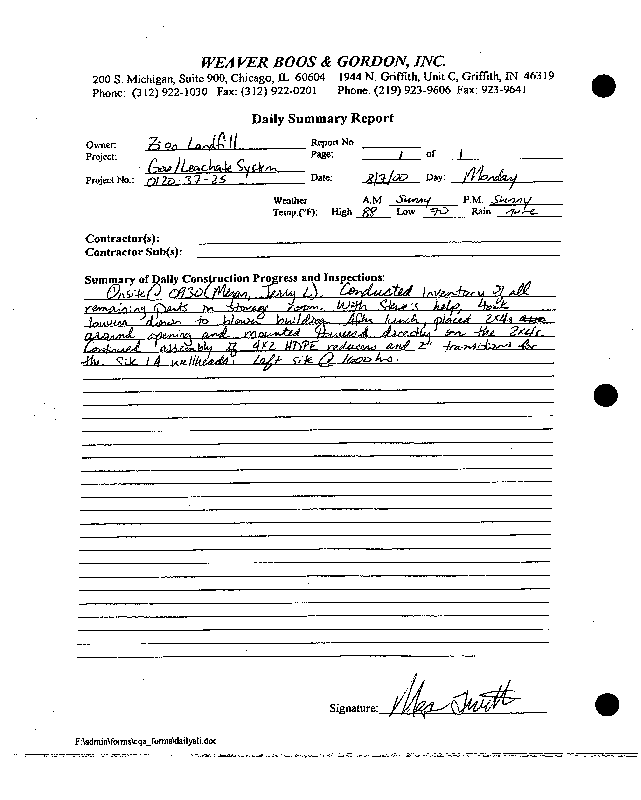 WEAVER BOOS & GORDON, INC.
200 S. Michigan, Suite 900, Chicago, IL 60604 1944 N. Griffith, Unit C, Griffith, IN 46319
Phone: (312) 922-1030 Fax: (312) 922-0201 Phone. (219) 923-9606 Fax: 923-9641
Daily Summary Report
Owner: Landfill Report No
Project: Gas/Leachate System Page: 1 of 1
Project No.: 0120-37-25 Date: Day: Monday
Weather A.M Sunny P.M. Sunny
Temp.(°F): High 88 Low 70 Rain
Contractor(s):
Contractor Sub(s):
Summary of Daily Construction Progress and Inspections:
Onsite @ 0930 ( Jerry L). Conducted Inventory of all
remaining parts in storage room. With Steve's help, took
down to blower building. After lunch, placed 2x4s
around opening and mounted directly on the 2x4s.
Continued assembly of 4x2 HDPE reducers and 2" transitions for
the Site 1A wellheads. Left site @ 1600 hrs.
Signature:
F:\admin\forms\cqa_forms\dailyali.doc